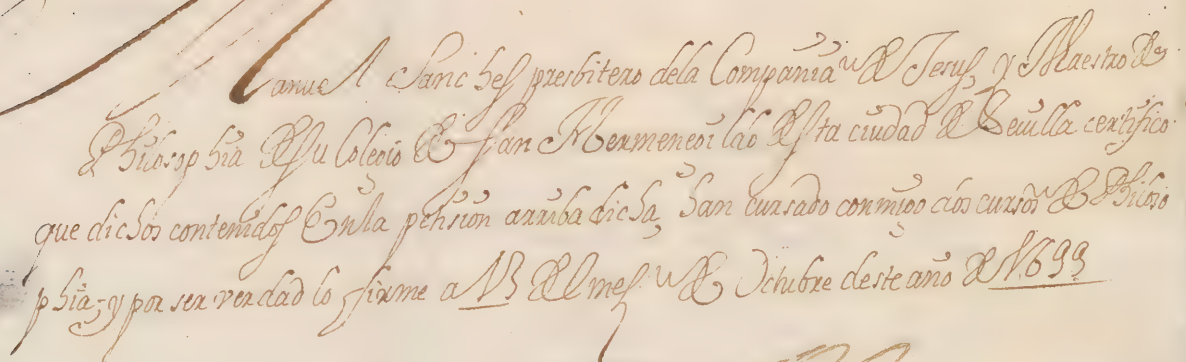 Manuel Sanches presbitero dela Compañia de Jesus, y Maestro de
Philosophia de su Colegio de san Hermenegildo desta ciudad de Sevilla certifico
que dichos contenidos en la petision arriba dicha, han cursado conmigo dos cursos de Philoso
phia, y por ser verdad lo firme a 13 del mes de Octubre deste año de 1699